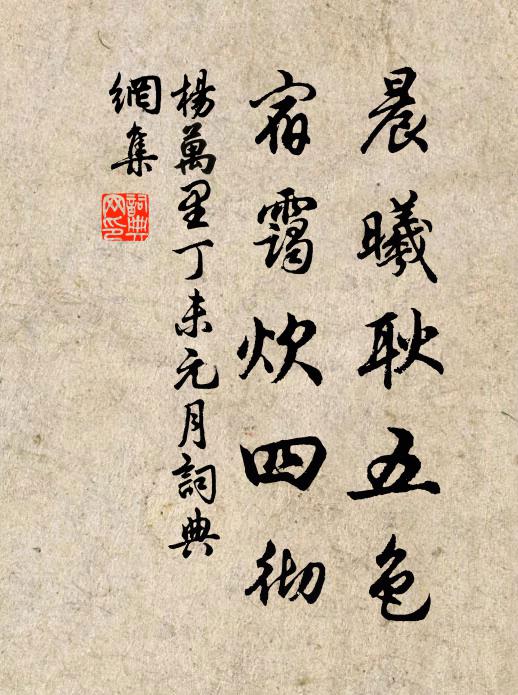 晨曦耿五色
宿靄炊四彻
楊萬里丁未元月詞典
網集
詞典
网印